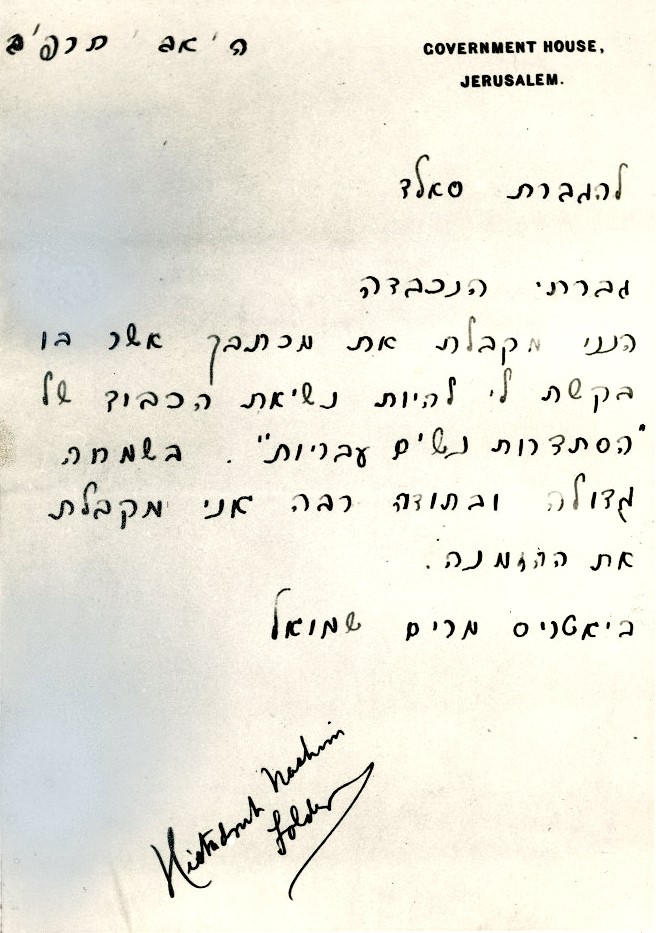 ה' אב תרפ"ב
GOVERNMENT HOUSE,
JERUSALEM.
להגברת סאלד
גברתי הנכבדה
הנני מקבלת את מכתבך אשר בו
בקשת לי להיות נשיאת הכבוד של
"הסתדרות נשים עבריות". בשמחה
גדולה ובתודה רבה אני מקבלת
את ההזמנה.
ביאטריס מרים שמואל
Histadruth Nashim
Folder